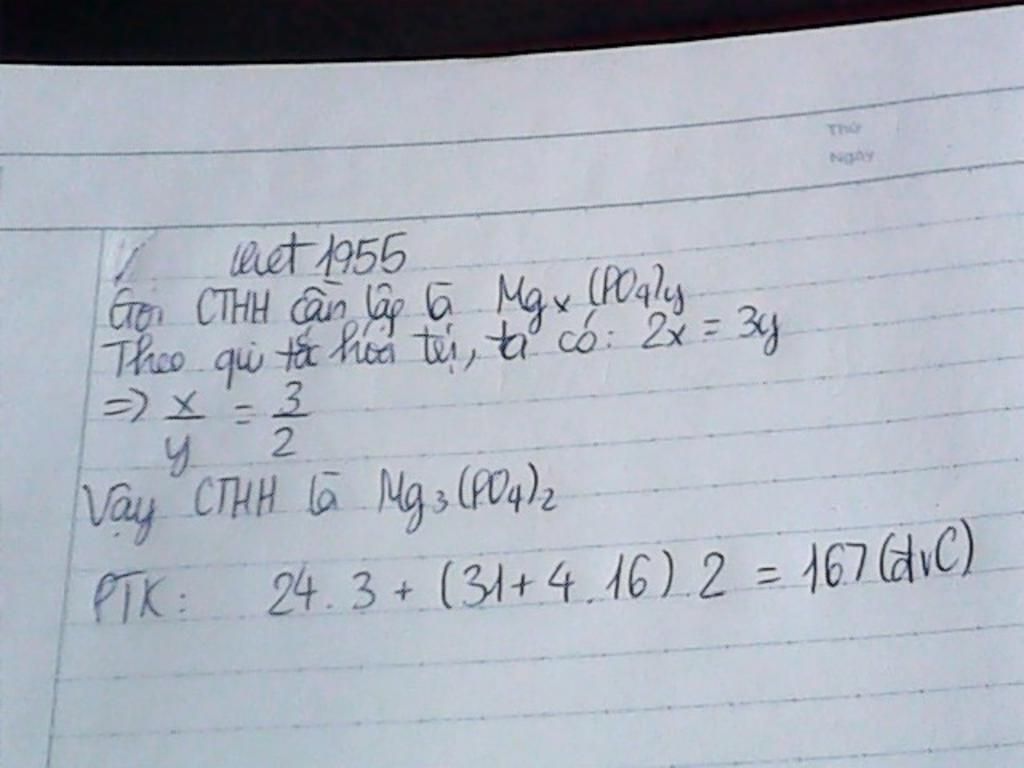 Thứ
Ngày
uet 1955
Gọi CTHH cần lập là Mgx (PO4)y
Theo qui tắc hóa trị, ta có: 2x = 3y
=> x/y = 3/2
Vậy CTHH là Mg3(PO4)2
PTK: 24.3 + (31+4.16).2 = 167(đvC)